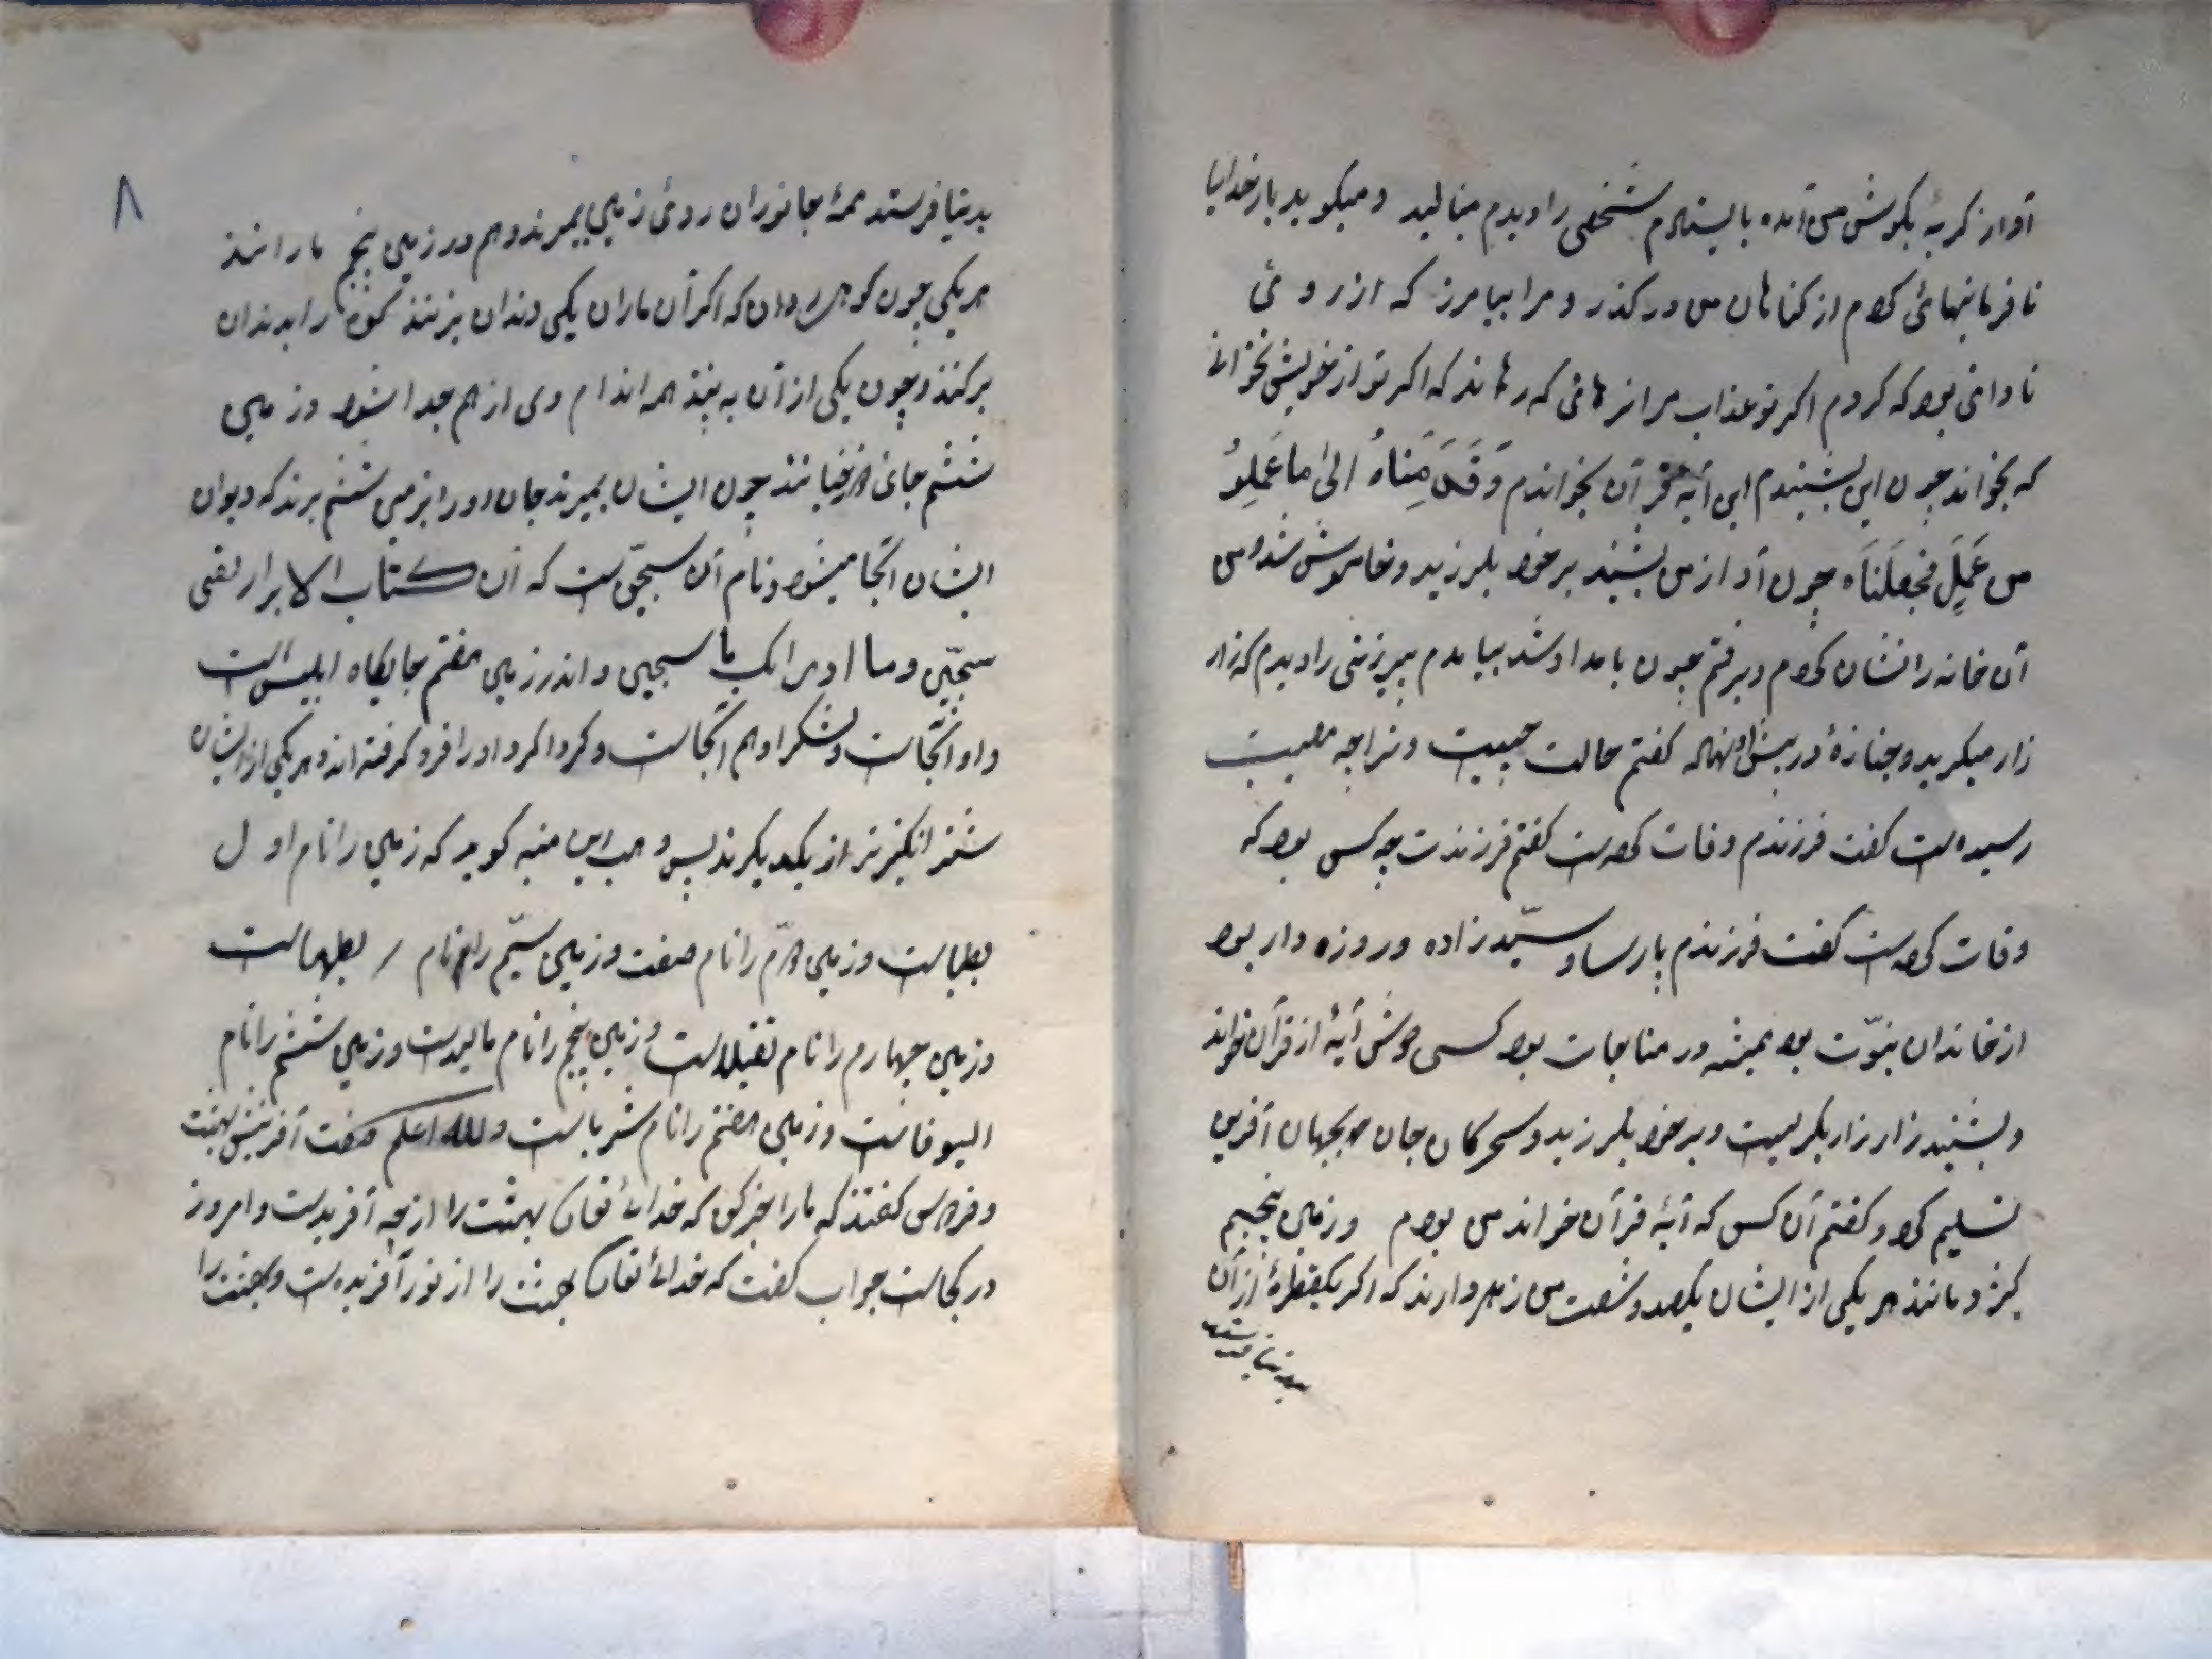 آواز کریهٔ بکوش می آمده بایستادم شخصی را دیدم مینالید و میکوید بار خدایا
نافرمانیهائی کردم از کناهان من درکذر و مرا بیامرز که از روئی
نادانی بود که کردم اکر تو عذاب مرا نرهائی که رهاند که اکر تو از خویش نخوانی
که بخواند چون این بشنیدم این آیه قرآن بخواندم وَقَدِمنَاهُ الیٰ ما عَمِلوُ
من عَمِلٍ فَجعَلنَاه چون آواز من بشنید برخود بلرزید و خاموش شد و من
آن خانه را نشان کردم و برفتم چون بامداد شد بیامدم پیرزنی را دیدم که زار
زار میکرید و جنازهٔ در پیش او نهاده کفتم حالت چیست و ترا چه مصیبت
رسیده است کفت فرزندم وفات کرده است کفتم فرزندت چه کس بود که
وفات کرده است کفت فرزندم پارسا و سیّد زاده و روزه دار بود
از خاندان نبوّت بود همیشه در مناجات بود کسی دوش آیهٔ از قرآن خواند
و بشنید زار زار بکریست و برخود بلرزید و سحرکاهان جان بجهان آفرین
تسلیم کرد و کفتم آن کس که آیهٔ قرآن خواند من بودم و زمین پنجم
کژدمانند هر یکی از ایشان یکصد و شصت من زهر دارند که اکر یکقطرهٔ از آن
بدنیا فرستد
۸
بدنیا فرستد همهٔ جانوران روئ زمین بمیرند و هم در زمین پنجم مارانند
هر یکی چون کوهی و دان که اکر آن ماران یکی دندان بزنند کوه را بدندان
برکنند و چون یکی از آن به بیند همه اندام وی از هم جدا شود و زمین
ششم جای چون ایشان بمیرند جان او را بزمین ششم برند که دیوان
ایشان آنجا میشود و نام آن سجّین است که ان کتاب الابرار لفی
سجّین وما ادراک ما سجین و اندر زمین هفتم جایکاه ابلیس است
و او آنجاست و لشکر او هم آنجاست و کرداکرد او را فرو کرفته اند و هر یکی از ایشان
از یکدیکرند پس وهب ابن منبه کوید که زمین را نام اول
است و زمین دوّم را نام است و زمین سیّم را نام است
و زمین چهارم را نام است و زمین پنجم را نام است و زمین ششم را نام
است و زمین هفتم را نام است والله اعلم صفت آفرینش بهشت
و فردوس کفتند که ما را خبر کن که خدائ تعالی بهشت را از چه آفریدست و امروز
در کجاست جواب کفت که خدائ تعالی بهشت را از نور آفریده است و بهشت را